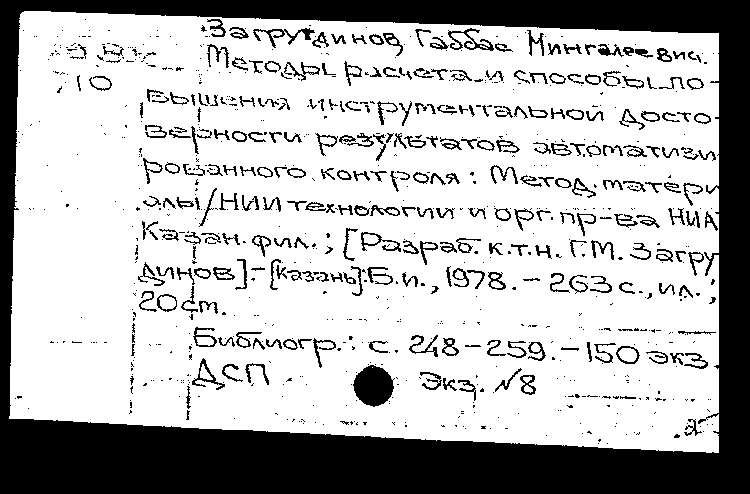 Загрутдинов Габбас Мингалеевич.
Методы расчета и способы по-
710
вышения инструментальной досто-
верности результатов автоматизи
рованного контроля: Метод. матери
алы/НИИ технологии и орг. пр-ва НИАТ
Казан. фил.; [Разраб. к.т.н. Г.М. Загру
динов].-[Казань]:Б.и., 1978.-263 с., ил.;
20 см.
Библиогр.: с. 248-259.-150 экз.
ДСП Экз. №8